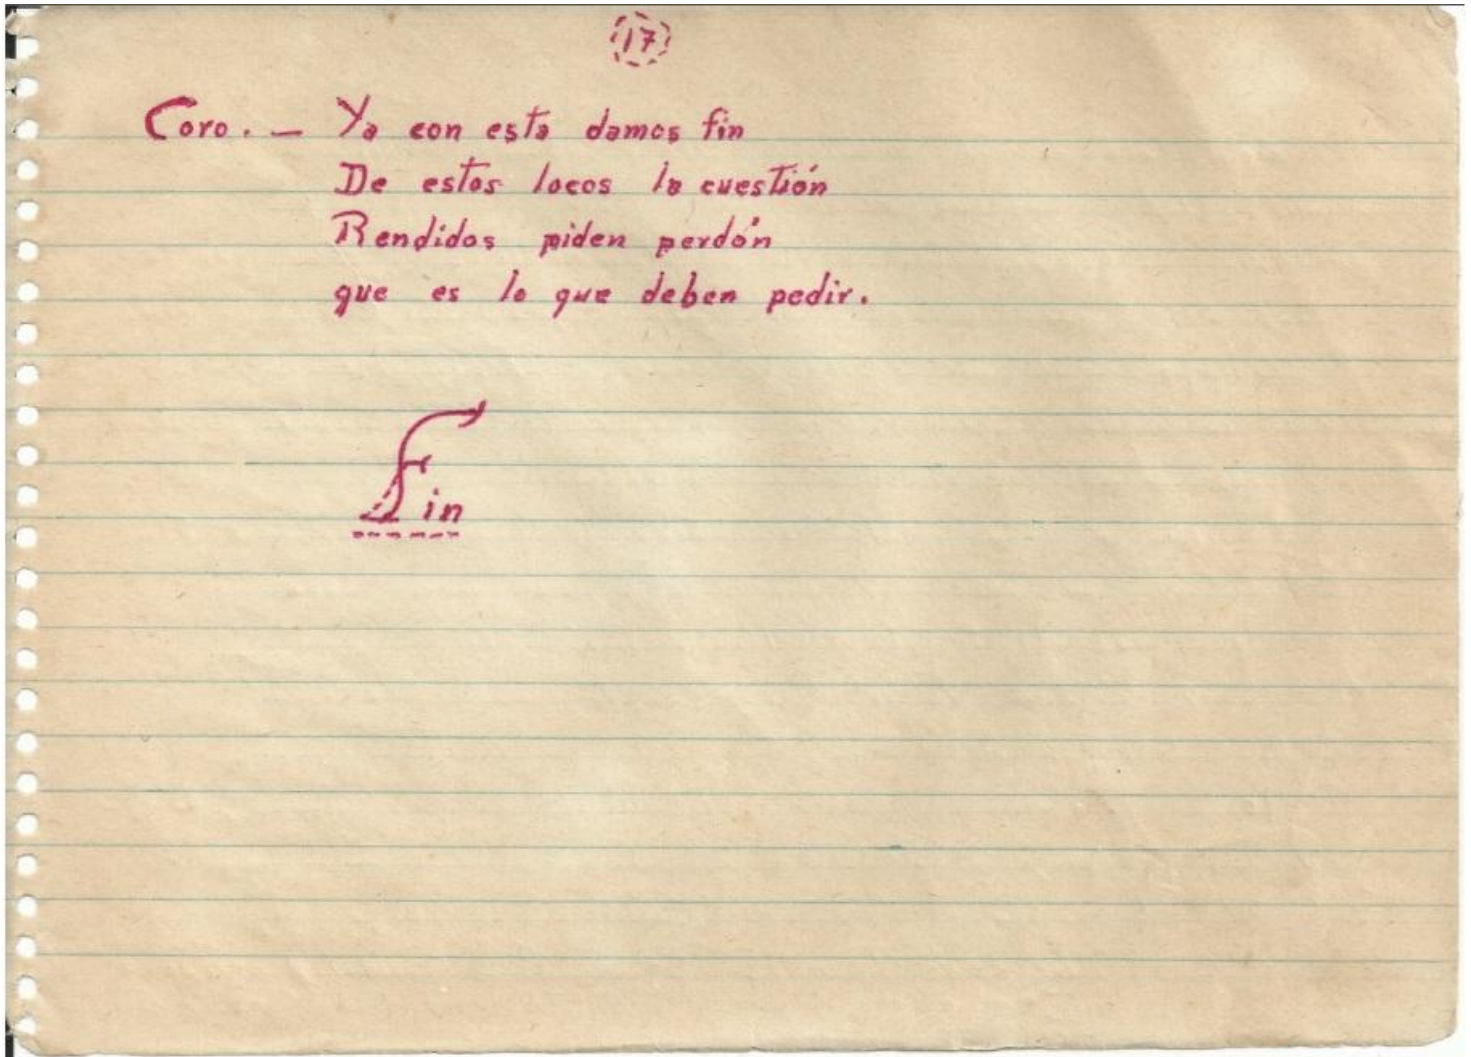 17
Coro. — Ya con esta damos fin
De estos locos la cuestión
Rendidos piden perdón
que es lo que deben pedir.
Fin